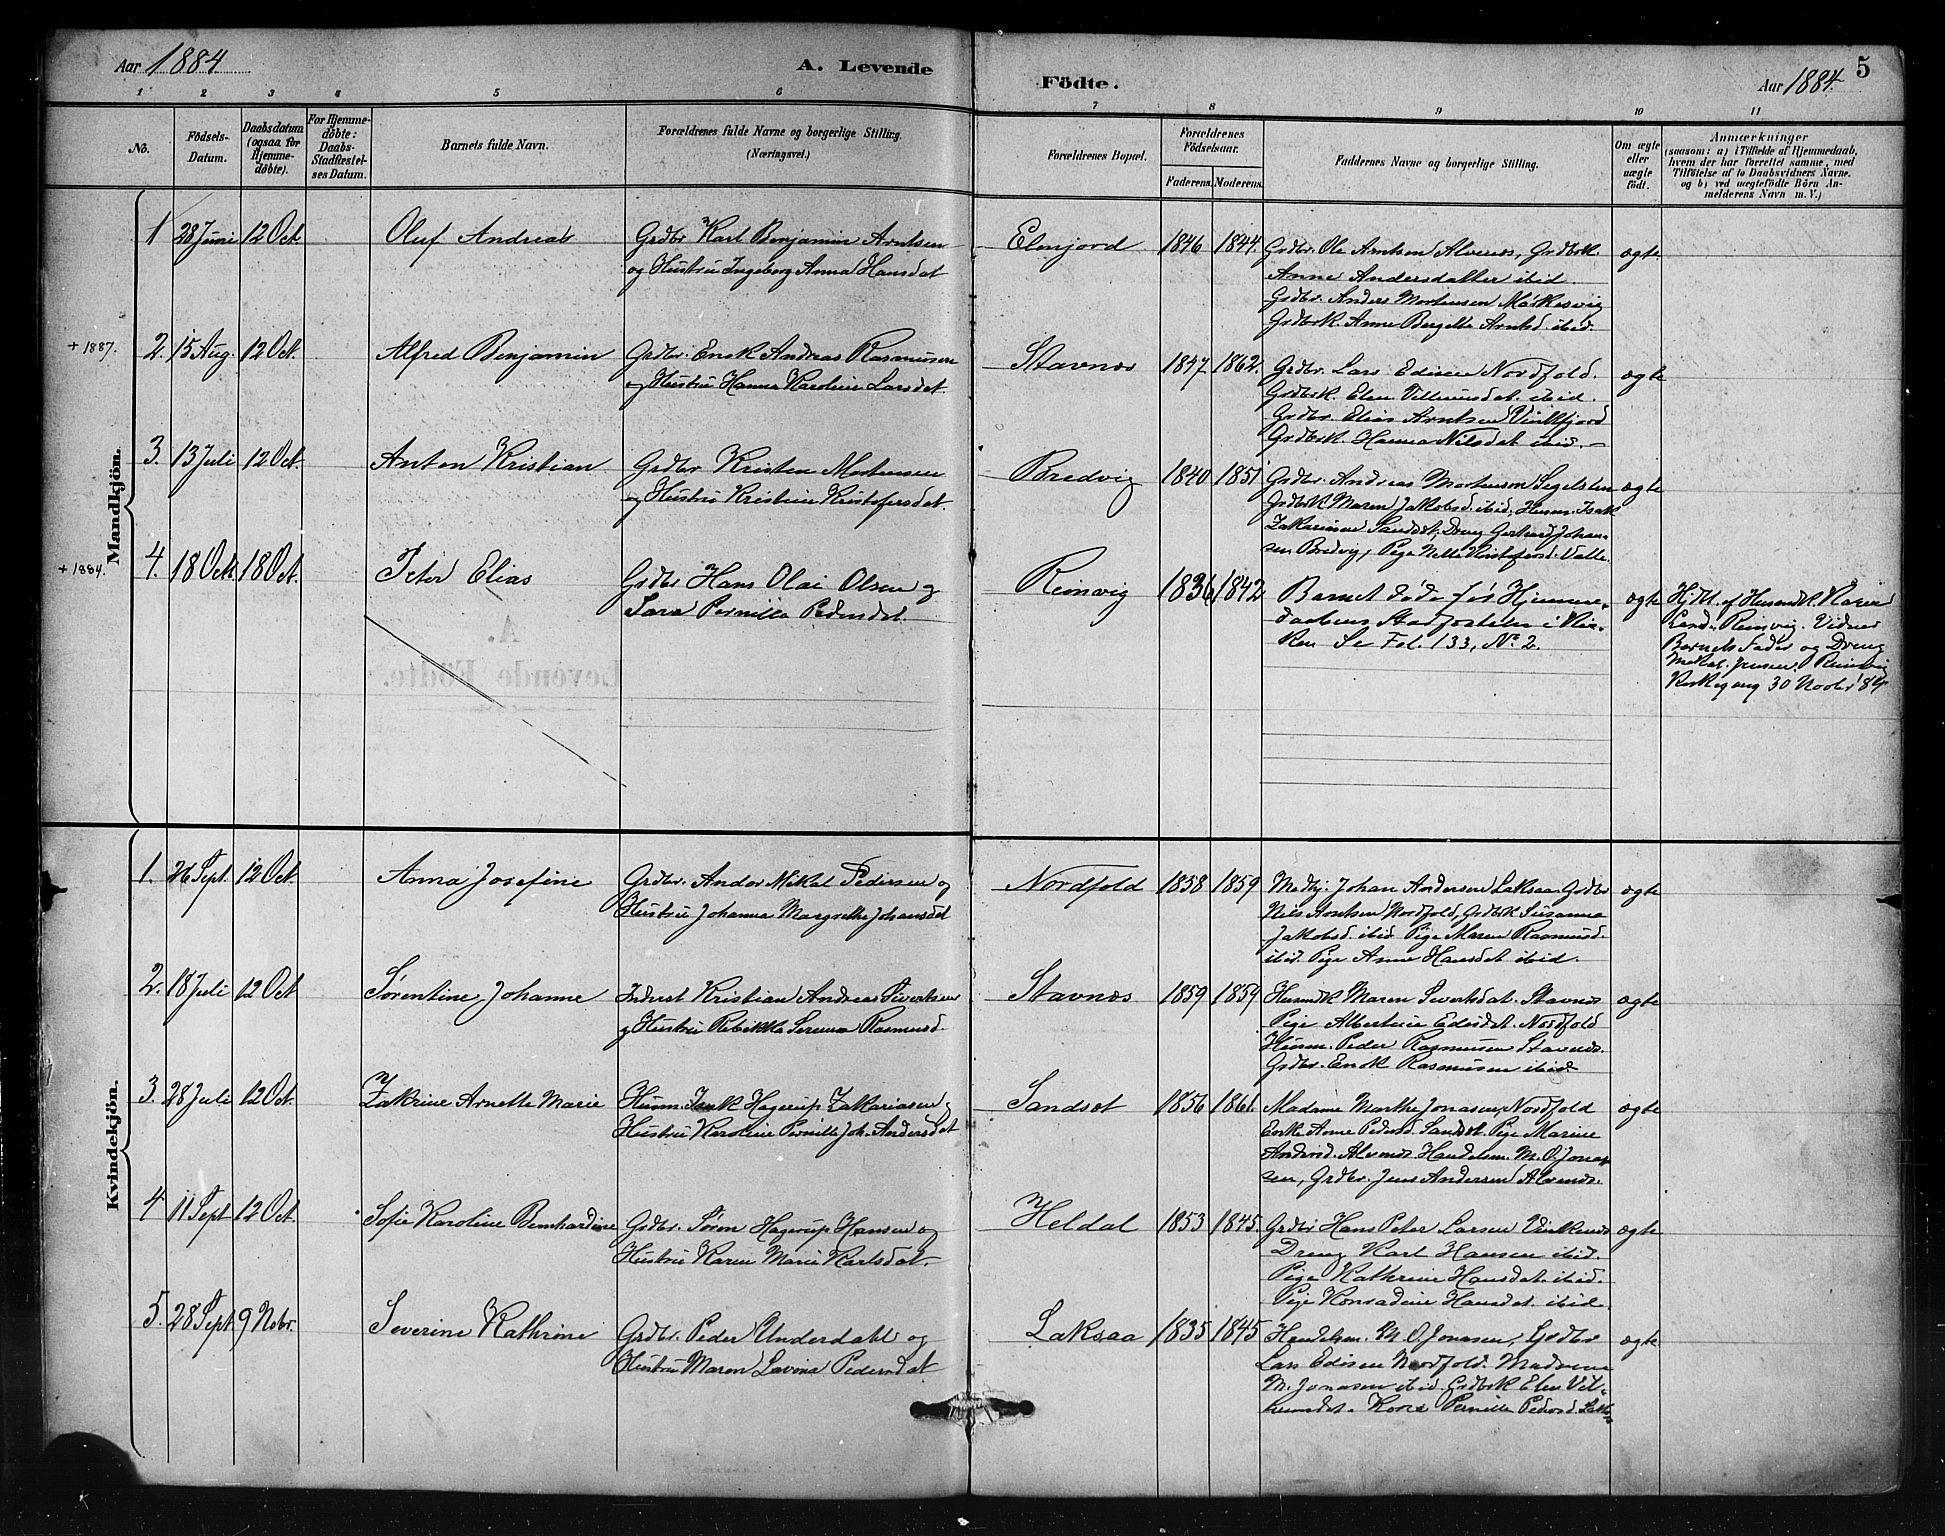 Aar 1884
A. Levende
Födte.
Aar 1884.
5
1 2 3 4 5 6 7 8 9 10 11
No.
Födsels-Datum.
Daabsdatum (ogsaa for Hjemmedöbte).
For Hjemmedöbte: Daabs-Stadfæstelses Datum.
Barnets fulde Navn.
Forældrenes fulde Navne og borgerlige Stilling.
(Næringsvei.)
Forældrenes Bopæl.
Forældrenes Födselsaar.
Faderens. Moderens.
Faddernes Navne og borgerlige Stilling.
Om ægte eller uægte födt.
Anmærkninger
(saasom: a) i Tilfælde af Hjemmedaab,
hvem der har forrettet samme, med
Tilföielse af to Daabsvidners Navne,
og b) ved uægtefödte Börn An-
melderens Navn m. V.)
Mandkjön.
1 28 Juni 12 Oct. Oluf Andreas
Grdbr Karl Benjamin Arntsen
og Hustru Ingeborg Anna Hansdat
Elenjord 1846 1844.
Grdbr. Ole Arntsen Alvenes, Grdbrk.
Anne Andersdatter ibid.
Grdbr. Anders Mortensen Mørkesvig
Grdbrk. Anne Bergitte Arntsd. ibid.
ægte.
+ 1887.
2. 15 Aug. 12 Oct. Alfred Benjamin
Grdbr. Enok Andreas Rasmusen
og Hustru Hanna Karoline Larsdat.
Stavnes 1847 1862.
Grdbr. Lars Edisen Nordfold.
Grdbrk. Elen Villumsdat. ibid.
Grdbr. Elias Arntsen Vinkfjord
Grdbrk. Hanna Nilsdat ibid. –
ægte
3. 13 Juli 12 Oct. Anton Kristian
Grdbr Kristen Mortensen
og Hustru Kristine Kristofersdat.
Bredvig 1840 1851
Grdbr. Andreas Mortensen Segelsten
Grdbrk Maren Jakobsd. ibid, Husm. Isak
Zakariasen Sandset, Dreng Gerhard Johan-
sen Bredvig, Pige Nella Kristofersd. Valle.
ægte
+ 1884.
4. 18 Oct. 18 Oct. Peter Elias
Grdbr Hans Olai Olsen og
Sara Pernille Pedersdat.
Reinvig 1836 1842
Barnet døde før Hjemme-
daabens Stadfæstelse i Kir-
ken Se Fol. 133, No 2.
ægte
Hjdbt. af Husmdk. Karen
Reinvig. Vidner
Barnets Fader og Dreng
Mekal. Jensen. Reinvig
Kirkegang 30 Novbr 84.
A.
Levende Födte.
Kvindekjön.
1. 26 Sept. 12 Oct. Anna Josefine
Grdbr. Andor Mikal Pedersen og
Hustru Johanna Margrethe Johansdat
Nordfold 1858 1859
Johan Andersen Laksaa, Grdbr
Nils Arntsen Nordfold, Grdbrk Susanna
Jakobsd. ibid. Pige Maren Rasmusd.
ibid. Pige Anne Hansdat ibid.
ægte
2. 18 Juli 12 Oct Sørentine Johanne
Inderst Kristian Andreas Sivertsen
og Hustru Rebekka Serena Rasmusd.
Stavnes 1859 1859
Husmdk Maren Sivertsdat. Stavnes
Pige Albertine Edisdat. Nordfold
Husm. Peder Rasmusen Stavnes.
Grdbr. Enok Rasmusen ibid
ægte
3. 28 Juli 12 Oct. Zakrine Arnette Marie
Husm. Isak Hagerup Zakariasen,
Hustru Karoline Pernille Joh. Andersdat
Sandset 1856 1861.
Madame Marthe Jonasen, Nordfold
Enke Anne Pedersd. Sandset. Pige Marine
Andersd. Alvenes Handelsm. M. O. Jona-
sen, Grdbr. Jens Andersen Alvenes.
ægte
4 11 Sept 12 Oct. Sofie Karoline Bernhardine
Grdbr. Søren Hagerup Hansen og
Hustru Karen Marie Karlsdat.
Heldal 1853 1845.
Grdbr Hans Peter Larsen Vinkenes
Dreng Karl Hansen ibid.
Pige Kathrine Hansdat. ibid.
Pige Konradine Hansdat. ibid.
ægte
5. 28 Sept. 9 Nobr. Severine Kathrine
Grdbr. Peder Underdahl og
Hustru Maren Lavina Pedersdat
Laksaa 1835 1845
Handelsm. M. O. Jonasen, Grdbr
Lars Edisen Nordfold. Madame
M. Jonasen ibid. Grdbrk Elen Vil-
lumsdat. Kone Pernille Pedersd.
ægte